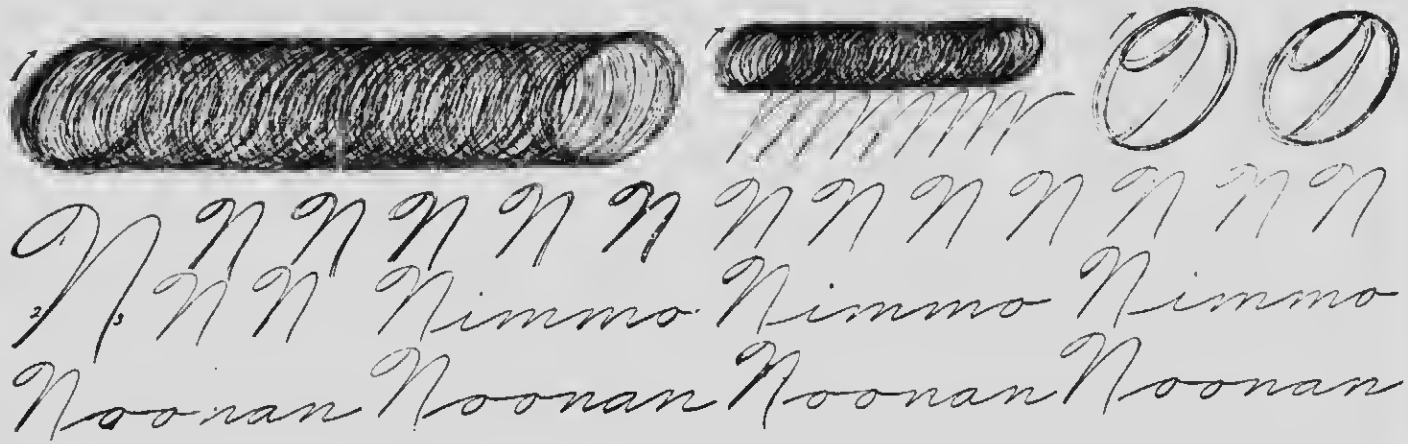 N N N N N N N N N N N N N
2 3 N N Nimmo Nimmo Nimmo
Noonan Noonan Noonan Noonan